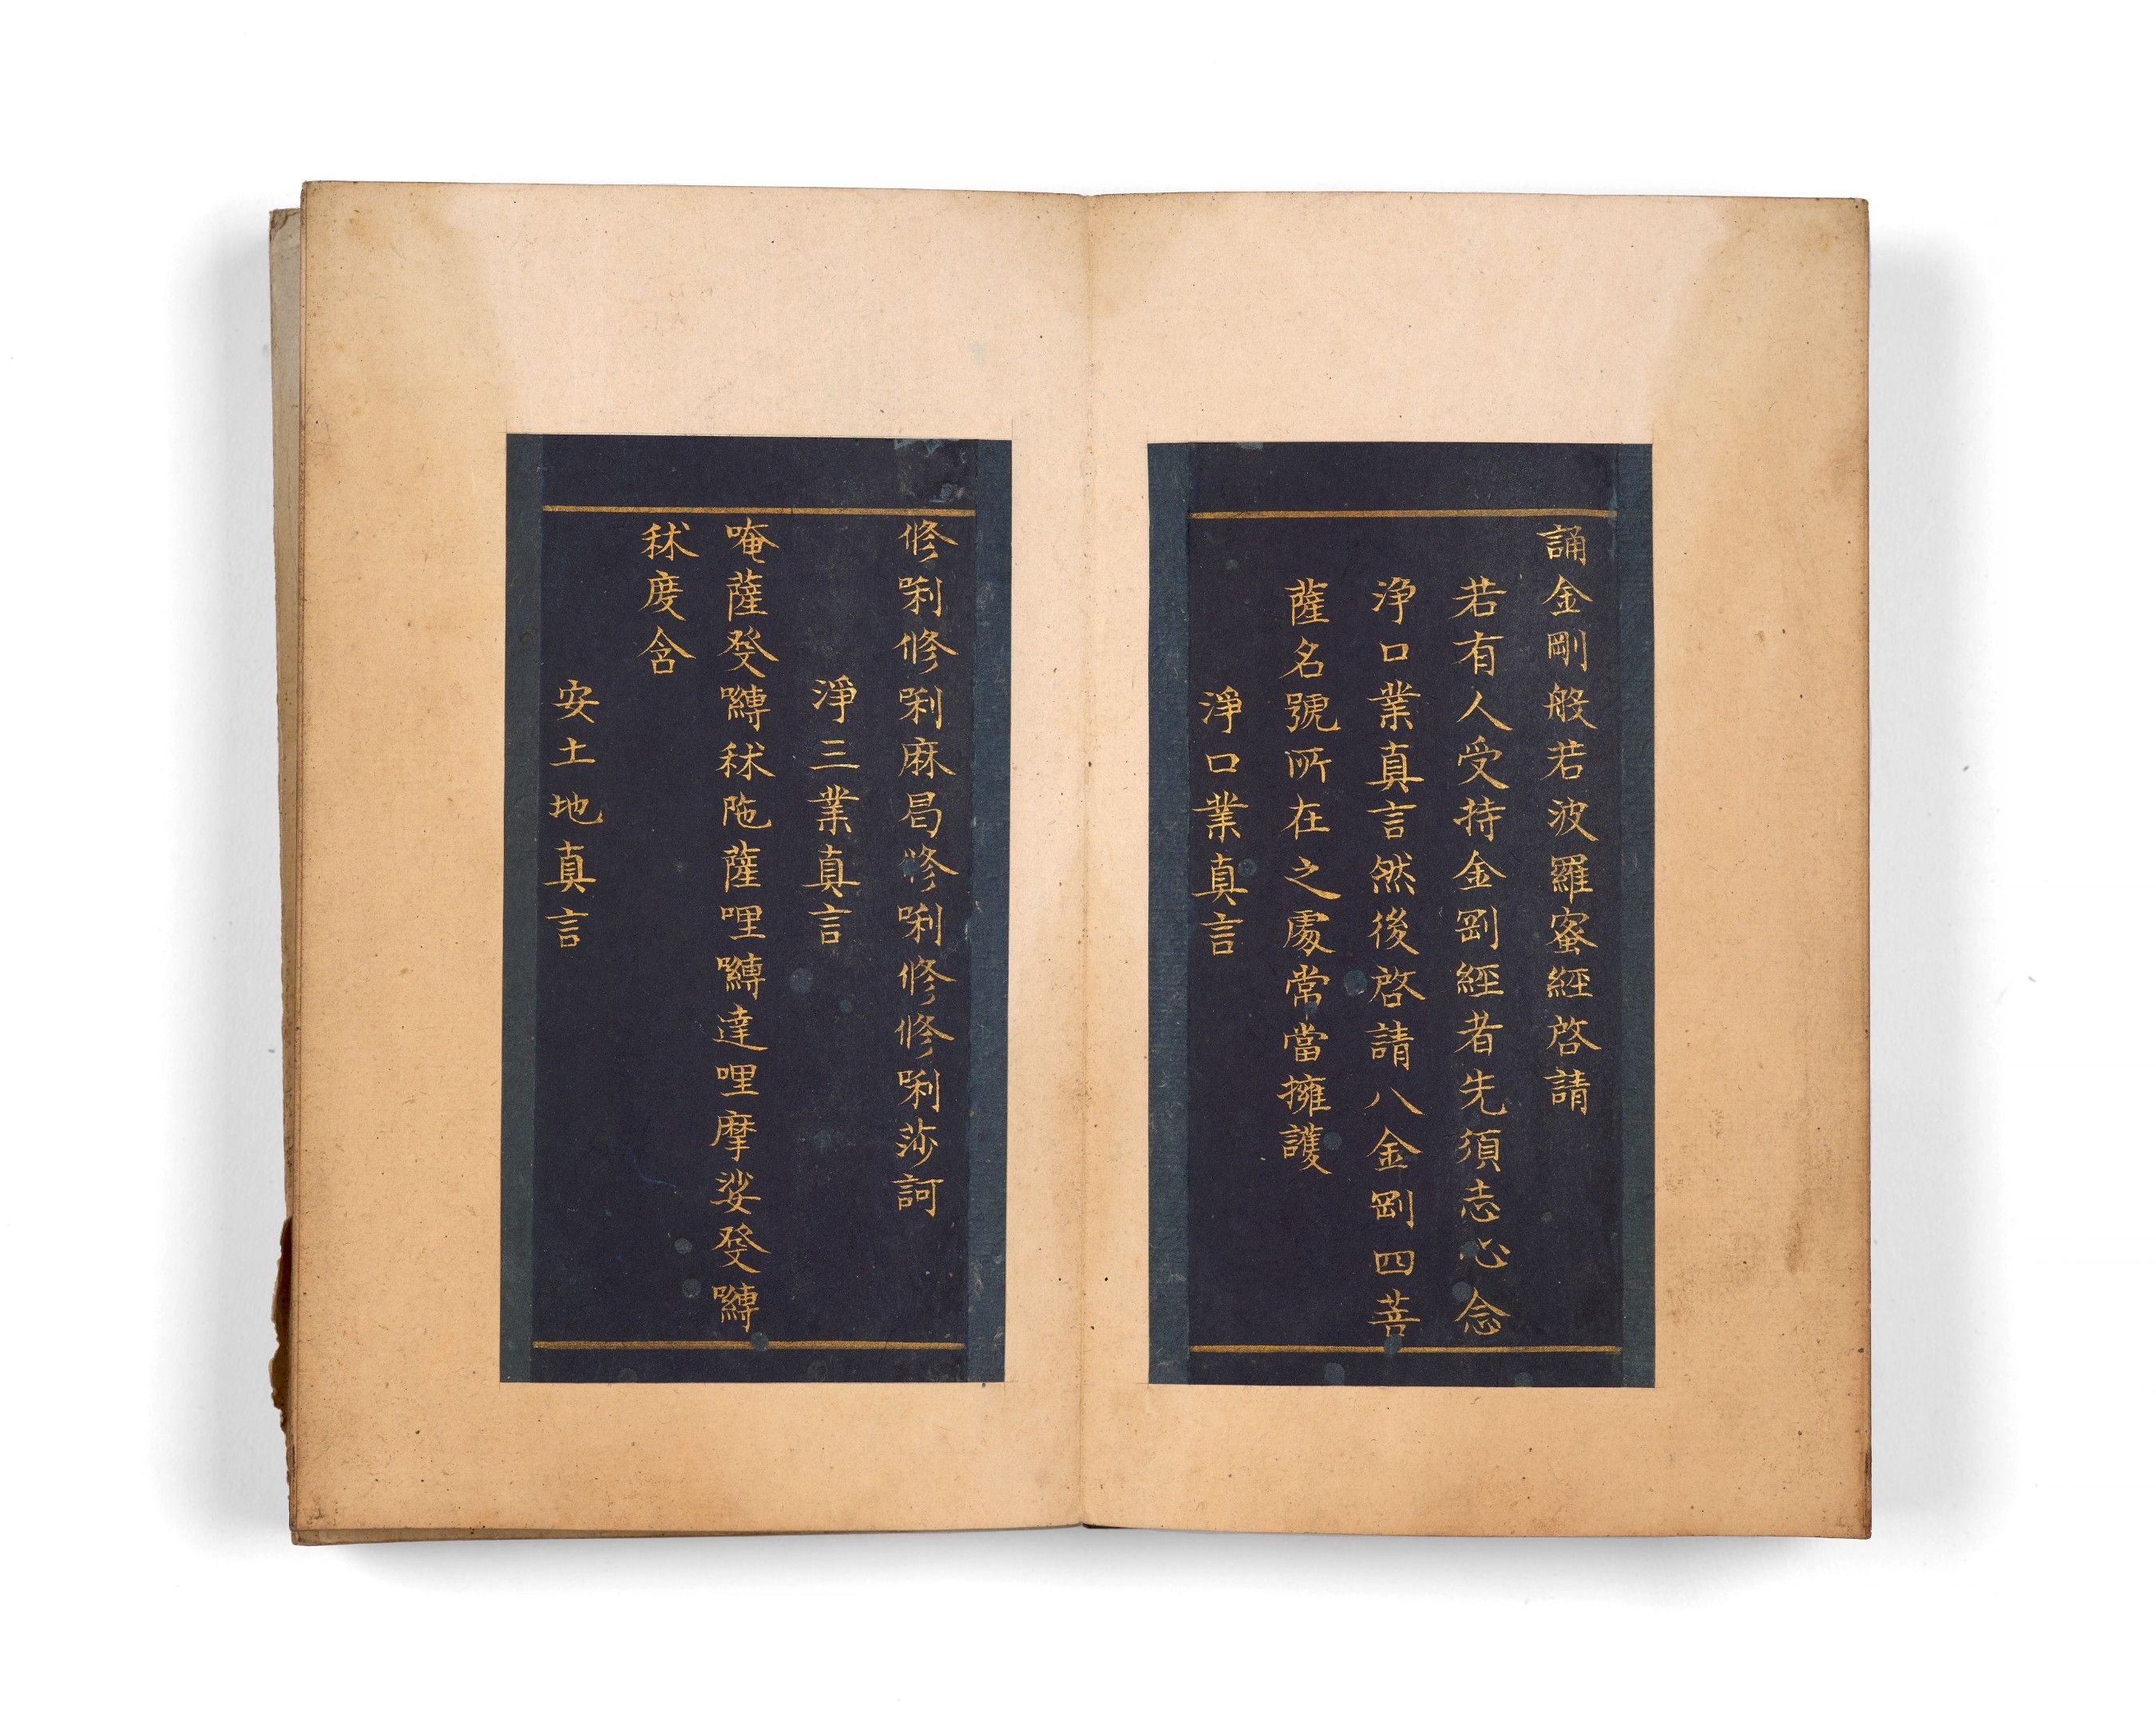 誦金剛般若波羅蜜經啓請
若有人受持金剛經者先須志心念
淨口業真言然後啓請八金剛四菩
薩名號所在之處常當擁護
淨口業真言
修唎修唎麻曷修唎修修唎莎訶
淨三業真言
唵薩癹嚩秫陁薩哩嚩達哩摩娑癹嚩
秫度含
安土地真言